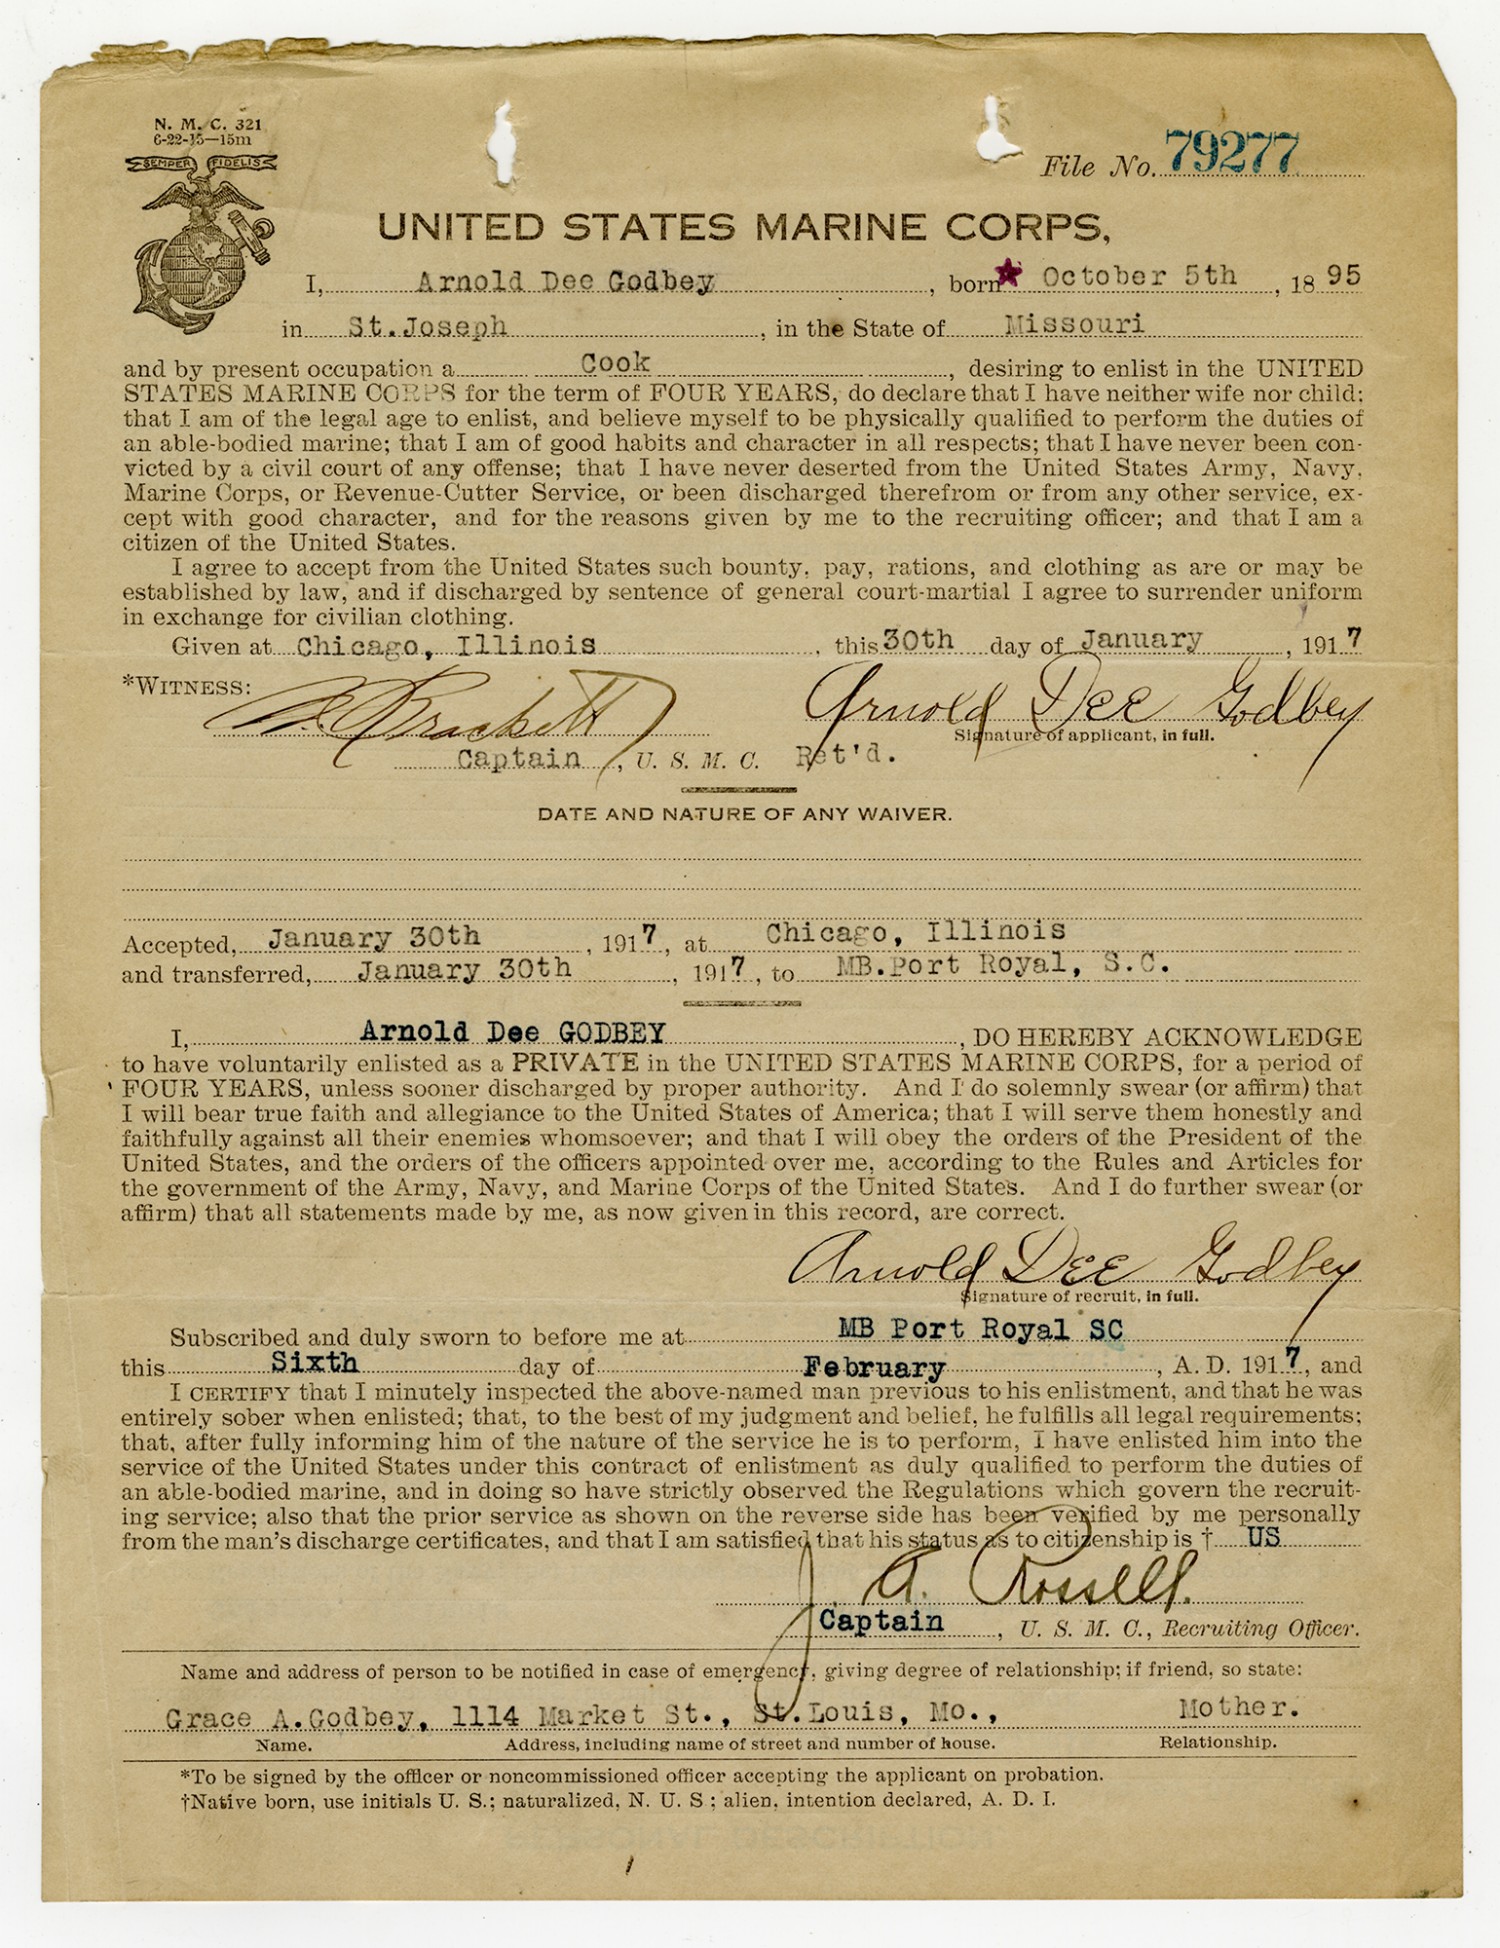 N. M. C. 321
6-22-15—15m
SEMPER FIDELIS
File No. 79277
UNITED STATES MARINE CORPS,
I, Arnold Dee Godbey, born* October 5th, 1895
in St.Joseph, in the State of Missouri
and by present occupation a Cook, desiring to enlist in the UNITED
STATES MARINE CORPS for the term of FOUR YEARS, do declare that I have neither wife nor child;
that I am of the legal age to enlist, and believe myself to be physically qualified to perform the duties of
an able-bodied marine; that I am of good habits and character in all respects; that I have never been con-
victed by a civil court of any offense; that I have never deserted from the United States Army, Navy,
Marine Corps, or Revenue-Cutter Service, or been discharged therefrom or from any other service, ex-
cept with good character, and for the reasons given by me to the recruiting officer; and that I am a
citizen of the United States.
I agree to accept from the United States such bounty, pay, rations, and clothing as are or may be
established by law, and if discharged by sentence of general court-martial I agree to surrender uniform
in exchange for civilian clothing.
Given at Chicago, Illinois, this 30th day of January, 1917
*WITNESS: Brackett Arnold Dee Godbey
Signature of applicant, in full.
Captain, U. S. M. C. Ret'd.
DATE AND NATURE OF ANY WAIVER.
Accepted, January 30th, 1917, at Chicago, Illinois
and transferred, January 30th, 1917, to MB.Port Royal, S.C.
I, Arnold Dee GODBEY, DO HEREBY ACKNOWLEDGE
to have voluntarily enlisted as a PRIVATE in the UNITED STATES MARINE CORPS, for a period of
FOUR YEARS, unless sooner discharged by proper authority. And I do solemnly swear (or affirm) that
I will bear true faith and allegiance to the United States of America; that I will serve them honestly and
faithfully against all their enemies whomsoever; and that I will obey the orders of the President of the
United States, and the orders of the officers appointed over me, according to the Rules and Articles for
the government of the Army, Navy, and Marine Corps of the United States. And I do further swear (or
affirm) that all statements made by me, as now given in this record, are correct.
Arnold Dee Godbey
Signature of recruit, in full.
Subscribed and duly sworn to before me at MB Port Royal SC
this Sixth day of February, A. D. 1917, and
I CERTIFY that I minutely inspected the above-named man previous to his enlistment, and that he was
entirely sober when enlisted; that, to the best of my judgment and belief, he fulfills all legal requirements;
that, after fully informing him of the nature of the service he is to perform, I have enlisted him into the
service of the United States under this contract of enlistment as duly qualified to perform the duties of
an able-bodied marine, and in doing so have strictly observed the Regulations which govern the recruit-
ing service; also that the prior service as shown on the reverse side has been verified by me personally
from the man's discharge certificates, and that I am satisfied that his status as to citizenship is † US
J. A. Rossell.
Captain, U. S. M. C., Recruiting Officer.
Name and address of person to be notified in case of emergency, giving degree of relationship; if friend, so state:
Grace A.Godbey, 1114 Market St., St.Louis, Mo., Mother.
Name. Address, including name of street and number of house. Relationship.
*To be signed by the officer or noncommissioned officer accepting the applicant on probation.
†Native born, use initials U. S.; naturalized, N. U. S ; alien, intention declared, A. D. I.